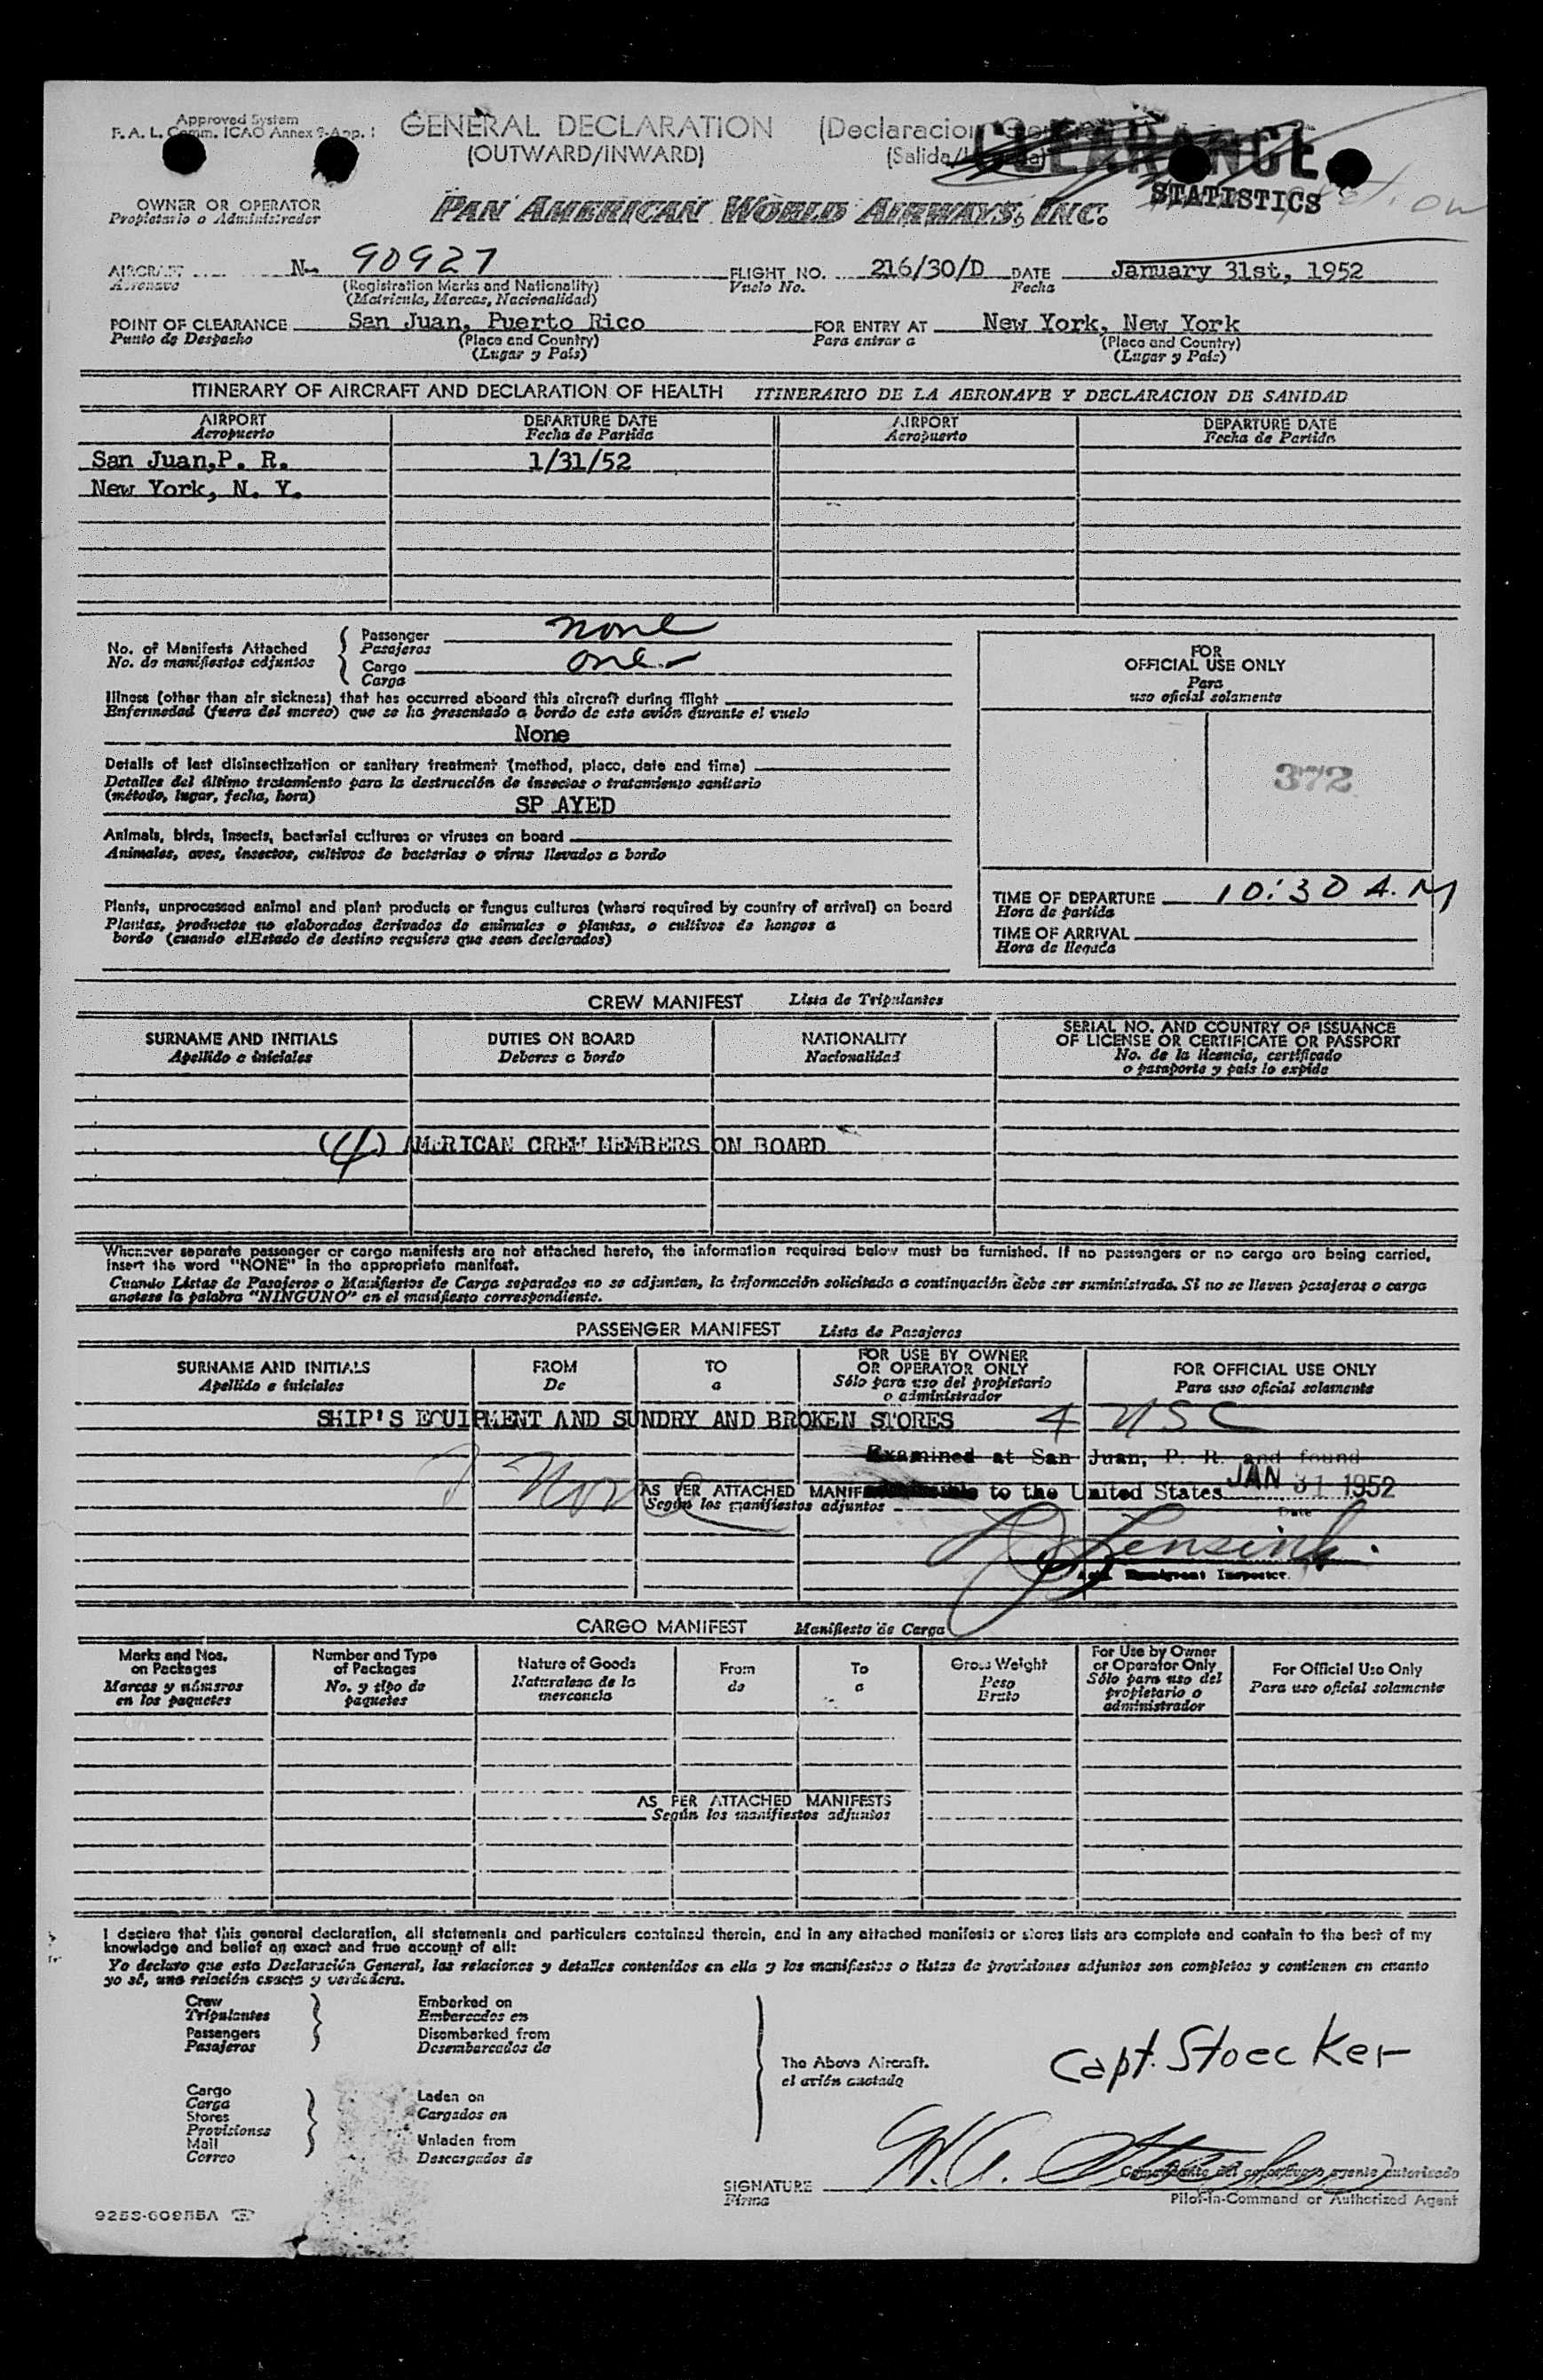 Approved System
F. A. L. Comm. ICAO Annex 9-App. 1
GENERAL DECLARATION (Declaracion General)
(OUTWARD/INWARD) (Salida/Llegada)
CLEARANCE
STATISTICS
OWNER OR OPERATOR
Propietario o Administrador
PAN AMERICAN WORLD AIRWAYS, INC.
AIRCRAFT N- 90927 FLIGHT NO. 216/30/D DATE January 31st, 1952
Aeronave (Registration Marks and Nationality) Vuelo No. Fecha
(Matricula, Marcas, Nacionalidad)
POINT OF CLEARANCE San Juan, Puerto Rico FOR ENTRY AT New York, New York
Punto de Despacho (Place and Country) Para entrar a (Place and Country)
(Lugar y País) (Lugar y País)
ITINERARY OF AIRCRAFT AND DECLARATION OF HEALTH ITINERARIO DE LA AERONAVE Y DECLARACION DE SANIDAD
AIRPORT DEPARTURE DATE AIRPORT DEPARTURE DATE
Aeropuerto Fecha de Partida Aeropuerto Fecha de Partida
San Juan,P. R. 1/31/52
New York, N. Y.
No. of Manifests Attached
No. de manifiestos adjuntos
Passenger none
Pasajeros
Cargo one
Carga
Illness (other than air sickness) that has occurred aboard this aircraft during flight
Enfermedad (fuera del mareo) que se ha presentado a bordo de este avión durante el vuelo
None
Details of last disinsectization or sanitary treatment (method, place, date and time)
Detalles del último tratamiento para la destrucción de insectos o tratamiento sanitario
(método, lugar, fecha, hora)
SP AYED
Animals, birds, insects, bacterial cultures or viruses on board
Animales, aves, insectos, cultivos de bacterias o virus llevados a bordo
Plants, unprocessed animal and plant products or fungus cultures (where required by country of arrival) on board
Plantas, productos no elaborados derivados de animales o plantas, o cultivos de hongos a
bordo (cuando elEstado de destino requiera que sean declarados)
FOR
OFFICIAL USE ONLY
Para
uso oficial solamente
372
TIME OF DEPARTURE 10:30 A.M
Hora de partida
TIME OF ARRIVAL
Hora de llegada
CREW MANIFEST Lista de Tripulantes
SURNAME AND INITIALS DUTIES ON BOARD NATIONALITY SERIAL NO. AND COUNTRY OF ISSUANCE
Apellido e iniciales Deberes a bordo Nacionalidad OF LICENSE OR CERTIFICATE OR PASSPORT
No. de la licencia, certificado
o pasaporte y país lo expide
(4) AMERICAN CREW MEMBERS ON BOARD
Whenever separate passenger or cargo manifests are not attached hereto, the information required below must be furnished. If no passengers or no cargo are being carried,
insert the word "NONE" in the appropriate manifest.
Cuando Listas de Pasajeros o Manifiestos de Carga separados no se adjuntan, la información solicitada a continuación debe ser suministrada. Si no se lleven pasajeros o carga
anotese la palabra "NINGUNO" en el manifiesto correspondiente.
PASSENGER MANIFEST Lista de Pasajeros
SURNAME AND INITIALS FROM TO FOR USE BY OWNER OR OPERATOR ONLY FOR OFFICIAL USE ONLY
Apellido e iniciales De a Sólo para uso del propietario o administrador Para uso oficial solamente
SHIP'S EQUIPMENT AND SUNDRY AND BROKEN STORES 4 USC
Examined at San Juan, P. R. and found
None AS PER ATTACHED MANIF to the United States JAN 31 1952
Según los manifiestos adjuntos Date
Immigrant Inspector.
CARGO MANIFEST Manifiesto de Carga
Marks and Nos. on Packages Number and Type of Packages Nature of Goods From To Gross Weight For Use by Owner or Operator Only For Official Use Only
Marcas y números en los paquetes No. y tipo de paquetes Naturaleza de la mercancia de a Peso Bruto Sólo para uso del propietario o administrador Para uso oficial solamente
AS PER ATTACHED MANIFESTS
Según los manifiestos adjuntos
I declare that this general declaration, all statements and particulars contained therein, and in any attached manifests or stores lists are complete and contain to the best of my
knowledge and belief an exact and true account of all:
Yo declaro que esta Declaración General, las relaciones y detalles contenidos en ella y los manifiestos o listas de provisiones adjuntos son completos y contienen en cuanto
yo sé, una relación exacta y verdadera.
Crew Embarked on
Tripulantes Embarcados en
Passengers Disembarked from
Pasajeros Desembarcados de
The Above Aircraft.
el avión anotado
Capt. Stoecker
Cargo Laden on
Carga Cargados en
Stores
Provisiones
Mail Unladen from
Correo Descargados de
SIGNATURE
Firma
Comandante del aeronave o agente autorizado
Pilot-in-Command or Authorized Agent
9253-60855A